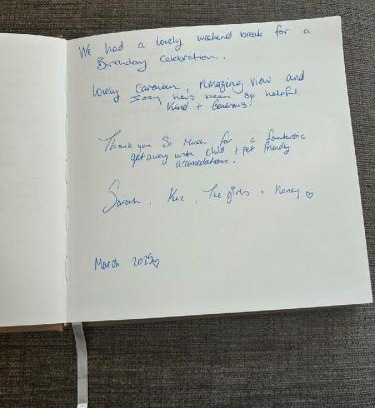 We had a lovely weekend break for a
Birthday Celebration.
Lovely Caravan, Amazing view and
has been so helpful
Kind + Generous.
Thank you So Much for a fantastic
get away with child + pet friendly
Sarah, The girls, Honey
March 2025